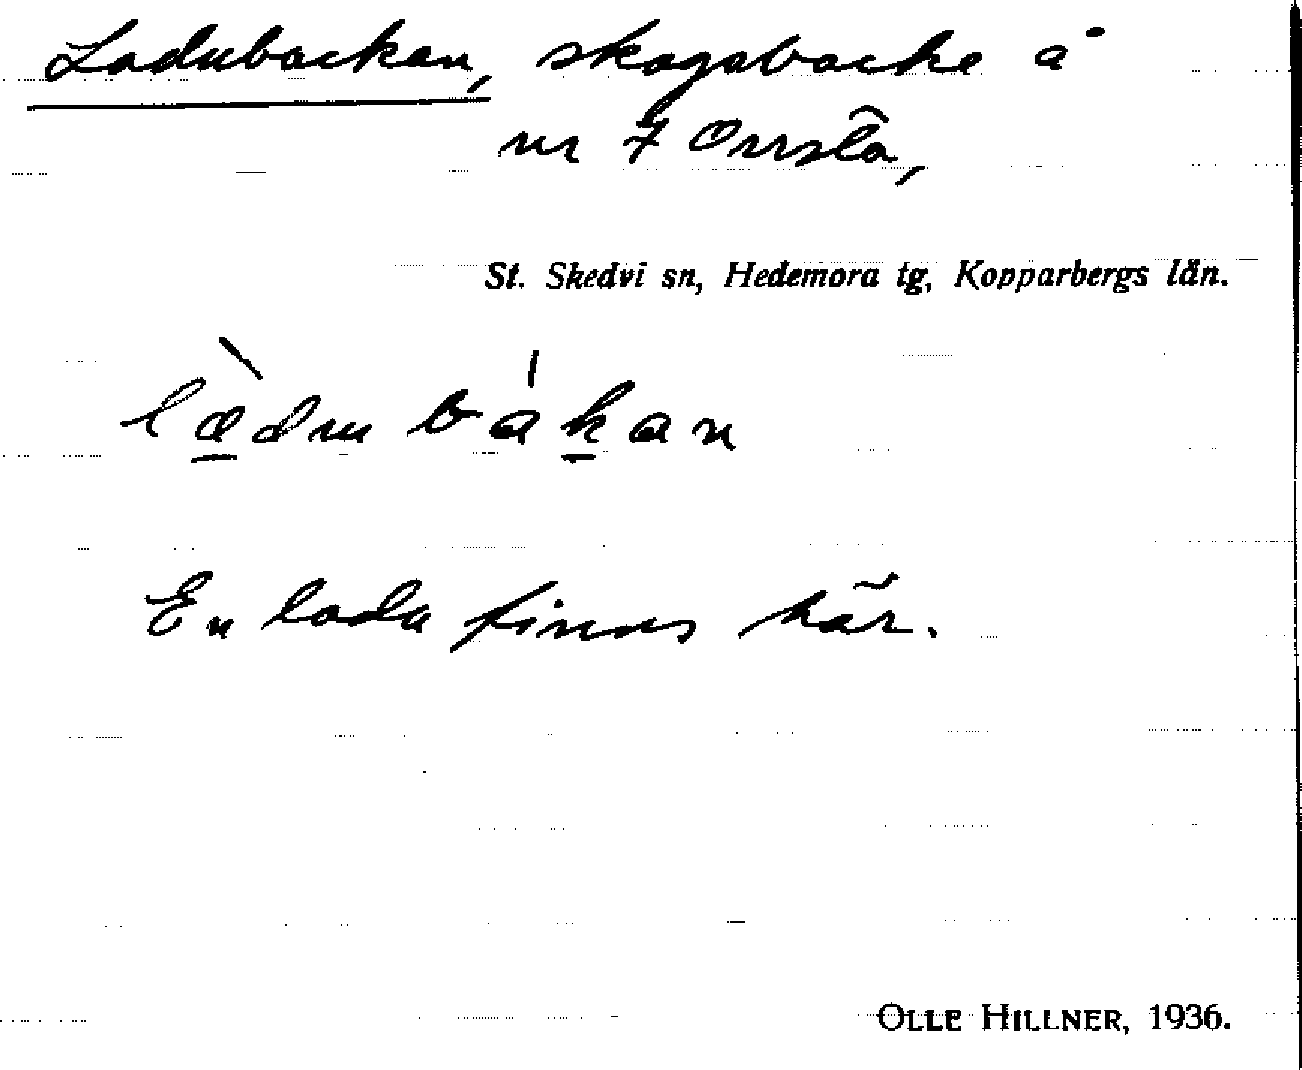 Ladubacken, skogsbacke å
nr 7 Orrsta,
St. Skedvi sn, Hedemora tg, Kopparbergs län.
làdu bákan
En lada finns här.
OLLE HILLNER, 1936.